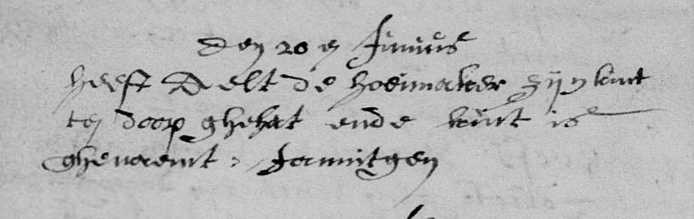 den 20 en Junius
heeft Aelt de hoeimaker zijn kint
ten doop ghehat ende kint is
ghenaemt : Jannitgen